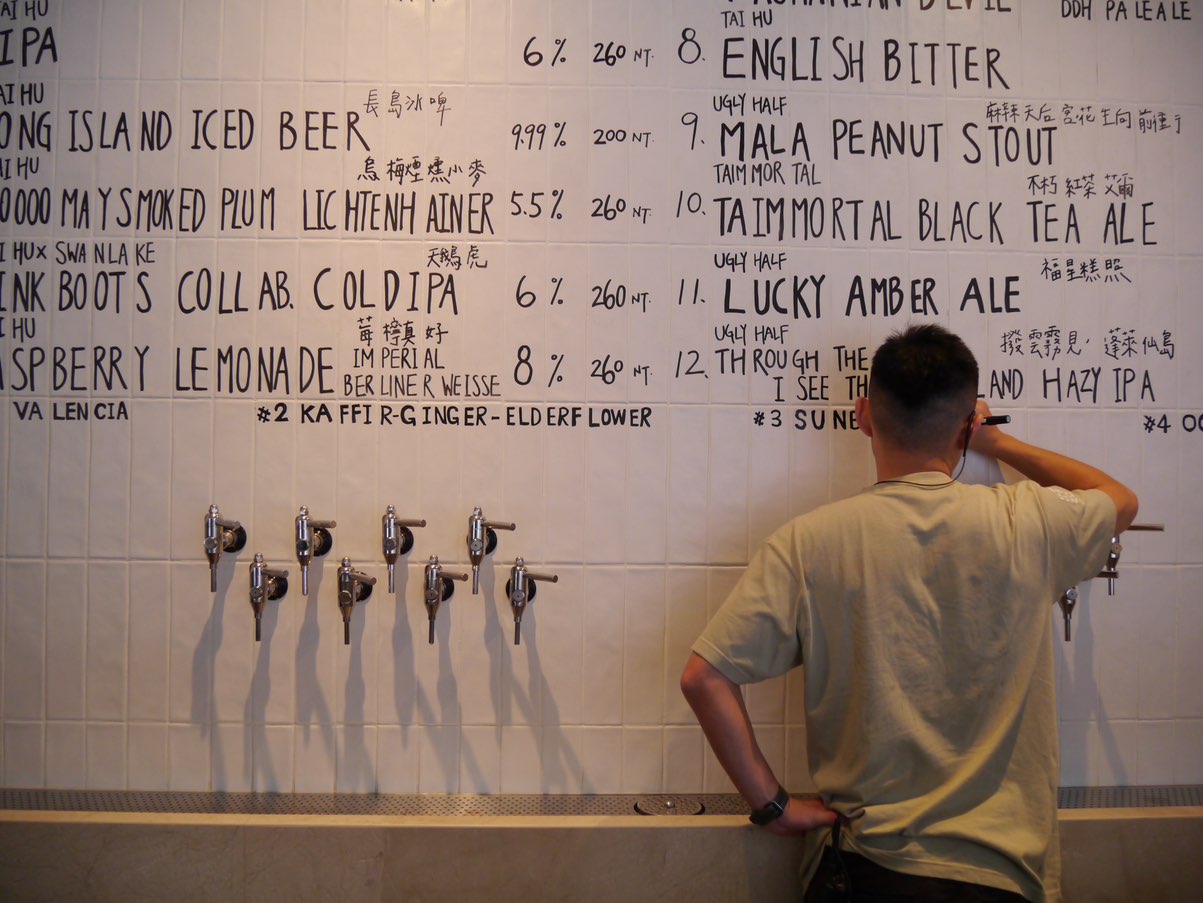 TAI HU
IPA 6% 260 NT.
TAI HU
ONG ISLAND ICED BEER 長島冰啤 9.99% 200 NT.
TAI HU
0000 MAY SMOKED PLUM LICHTENHAINER 烏梅煙燻小麥 5.5% 260 NT.
I HU x SWANLAKE
INK BOOTS COLLAB. COLD IPA 天鵝虎 6% 260 NT.
I HU
ASPBERRY LEMONADE 莓檸真好
IMPERIAL
BERLINER WEISSE 8% 260 NT.
DEVIL
DDH PALE ALE
TAI HU
8. ENGLISH BITTER
UGLY HALF
9. MALA PEANUT STOUT 麻辣天后宮花生向前衝
TAIMMORTAL
10. TAIMMORTAL BLACK TEA ALE 不朽紅茶艾爾
UGLY HALF
11. LUCKY AMBER ALE 福星糕照
UGLY HALF
12. THROUGH THE 撥雲霧見,蓬萊仙島
I SEE LAND HAZY IPA
VALENCIA #2 KAFFIR-GINGER-ELDERFLOWER #3 #4